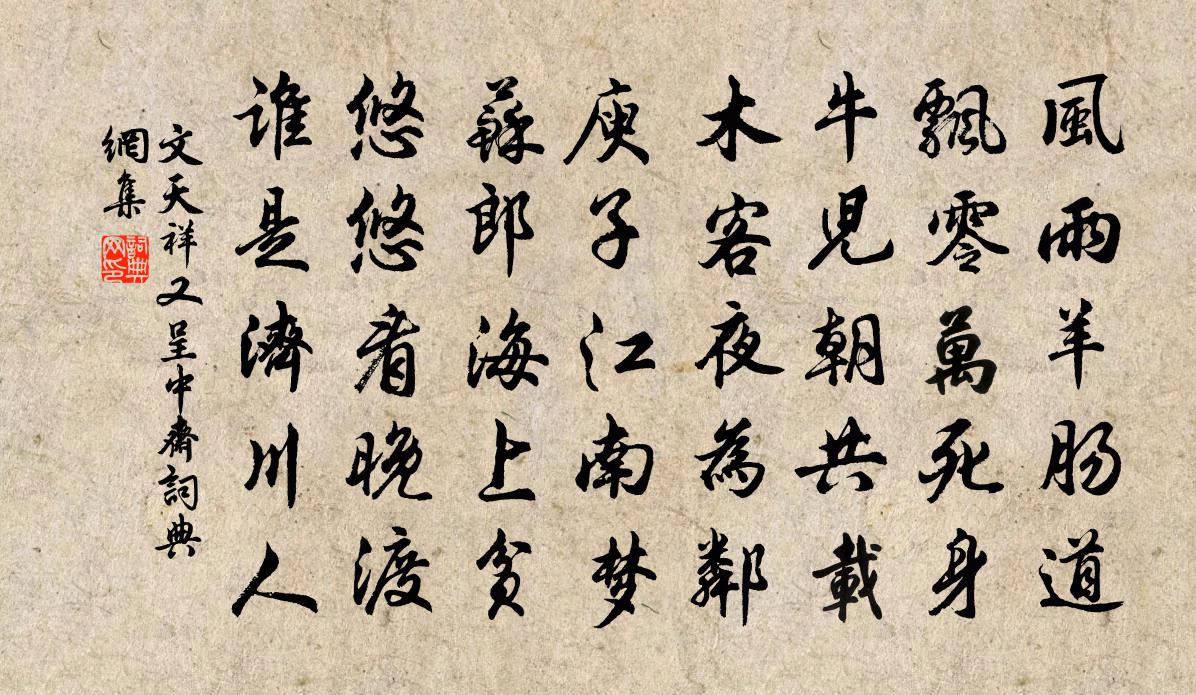 風雨羊肠道
飄零萬死身
牛兒朝共載
木客夜為鄰
庾子江南梦
蘇郎海上貧
悠悠看晚渡
誰是濟川人
文天祥又呈中齋詞典
網集
詞典
网印